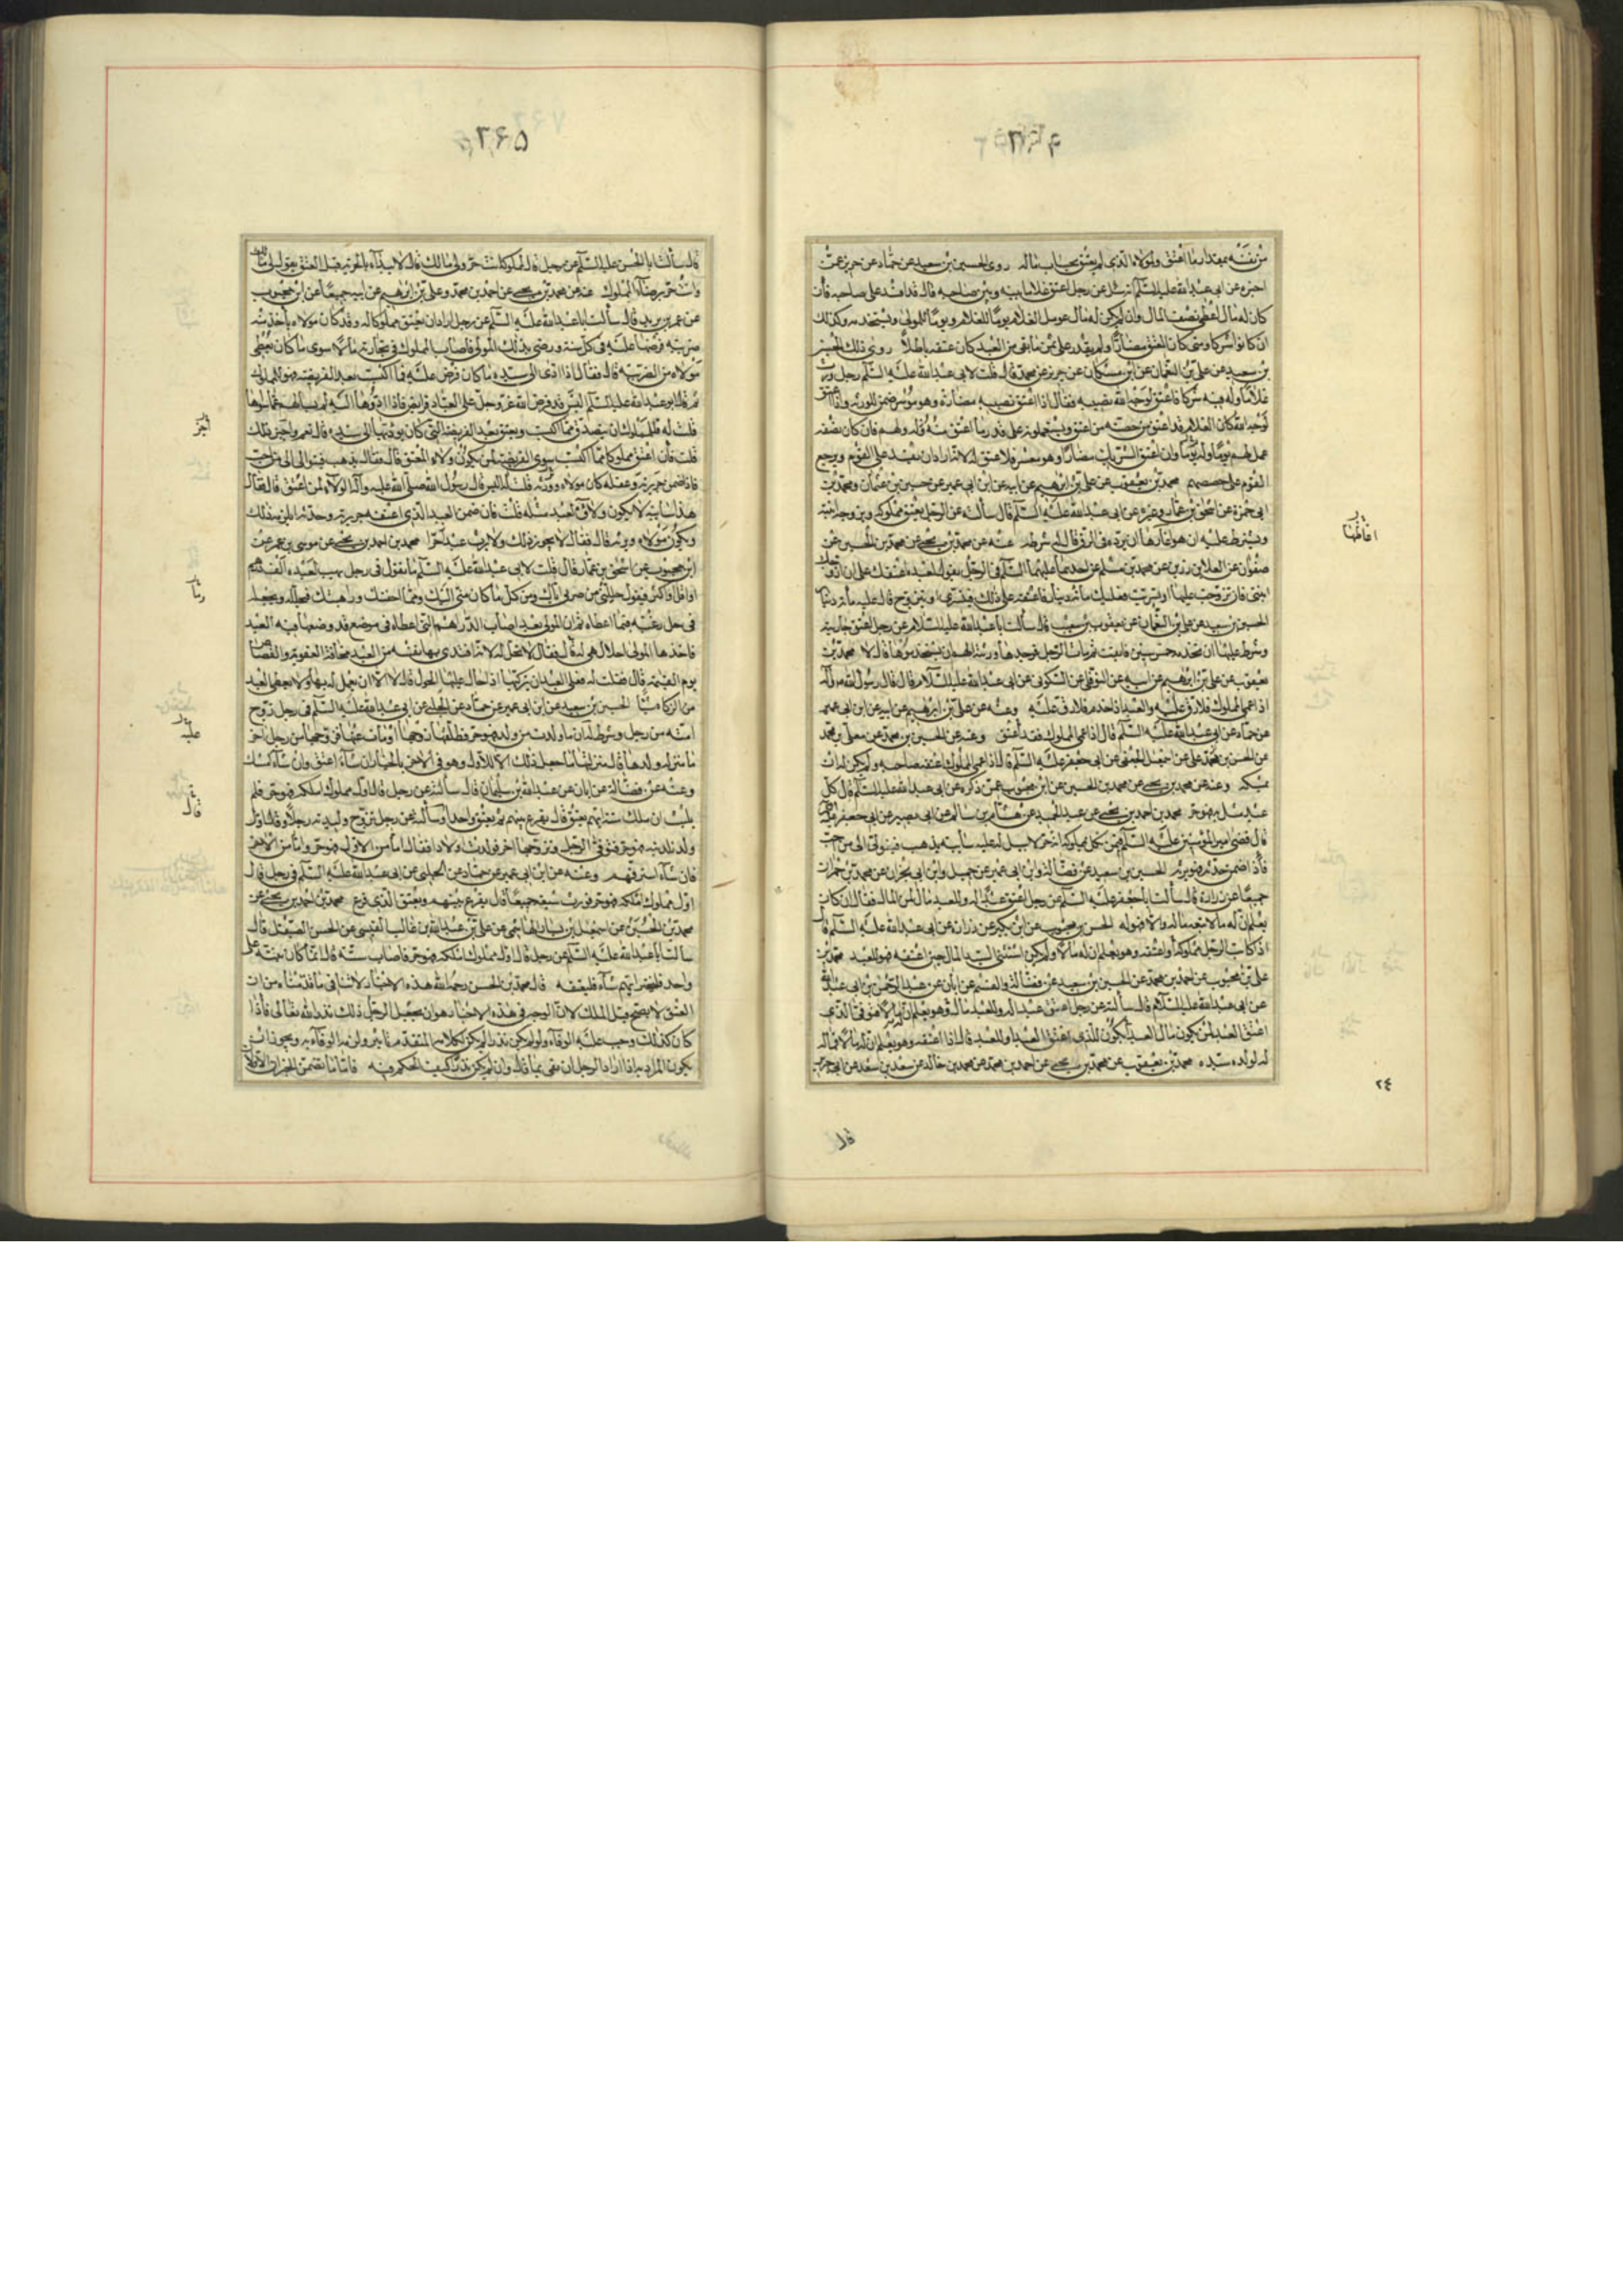 من نفسه بمقدار ما اعتق ولمولاه الذي لم يعتق بحساب ماله روى الحسين بن سعيد عن حماد عن حريز عمن
اخبره عن ابي عبد الله عليه السلم انه سئل عن رجل اعتق غلاما بينه وبين صاحبه قال قد افسد على صاحبه فان
كان له مال اعطى نصف المال وان لم يكن له مال عومل الغلام يوما للغلام ويوما للمولى ويستخدمه وكذلك
ان كانوا شركاء ومتى كان المعتق مضارا ولم يقدر على ثمن ما بقي من العبد كان عتقه باطلا روى ذلك الحسين
بن سعيد عن علي بن النعمان عن ابن مسكان عن حريز عن محمد قال قلت لابي عبد الله عليه السلم رجل ورث
غلاما وله فيه شركاء فاعتق لوجه الله نصيبه فقال اذا اعتق نصيبه مضارة وهو موسر ضمن للورثة واذا اعتق
لوجه الله كان الغلام قد اعتق من حصته من اعتق ويستعملونه على قدر ما اعتق منه له ولهم فان كان نصفه
عمل لهم يوما وله يوما وان اعتق الشريك مضارا وهو معسر فلا عتق له لانه اراد ان يفسد على القوم ويرجع
القوم على حصصهم محمد بن يعقوب عن علي بن ابرهيم عن ابيه عن ابن ابي عمير عن حسين بن عثمان ومحمد بن
ابي حمزة عن اسحق بن عمار وغيره عن ابي عبد الله عليه السلم قال سألته عن الرجل يعتق مملوكه ويزوجه ابنته
ويشترط عليه ان هو اغارها ان يرده في الرق قال له شرطه عنه عن محمد بن يحيى عن محمد بن الحسين عن
صفوان عن العلا بن رزين عن محمد بن مسلم عن احدهما عليهما السلم في الرجل يقول لعبده اعتقك على ان ازوجك
ابنتي فان تزوجت عليها او تسريت فعليك مائة دينار فاعتقه على ذلك فيتسرى او يتزوج قال عليه مائة دينار
الحسين بن سعيد عن علي بن النعمان عن يعقوب بن شعيب قال سألت ابا عبد الله عليه السلام عن رجل اعتق جاريته
وشرط عليها ان تخدمه خمس سنين فابقت ثم مات الرجل فوجدها ورثته الهم ان يستخدموها قال لا محمد بن
يعقوب عن علي بن ابرهيم عن ابيه عن النوفلي عن السكوني عن ابي عبد الله عليه السلام قال قال رسول الله ص وآله
اذا عمي المملوك فلا رق عليه والعبد اذا جذم فلا رق عليه وعنه عن علي بن ابرهيم عن ابيه عن ابن ابي عمير
عن حماد عن ابي عبد الله عليه السلم قال اذا عمي المملوك فقد اعتق وعنه عن الحسين بن محمد عن معلى بن محمد
عن الحسن بن علي عن اسمعيل الجعفي عن ابي جعفر عليه السلم قال اذا عمي المملوك اعتقه صاحبه ولم يكن له ان
يمسكه وعنه عن محمد بن يحيى عن محمد بن الحسين عن ابن محبوب عمن ذكره عن ابي عبد الله عليه السلم قال كل
عبد مثل به فهو حر محمد بن احمد بن يحيى عن عبد الحميد عن هشام بن سالم عن ابي بصير عن ابي جعفر
قال قضى امير المؤمنين عليه السلم فيمن نكل بمملوكه انه حر لا سبيل له عليه سائبة يذهب فيتولى الى من احب
فاذا ضمن حدثه فهو يرثه الحسين بن سعيد عن فضالة وابن ابي عمير عن جميل وابن ابي نجران عن محمد بن حمران
جميعا عن زرارة قال سألت ابا جعفر عليه السلم عن رجل اعتق عبدا له وللعبد مال لمن المال فقال ان كان
يعلم ان له مالا تبعه ماله والا فهو له الحسن بن محبوب عن ابن بكير عن زرارة عن ابي عبد الله عليه السلم قال
اذا كاتب الرجل مملوكه او اعتقه وهو يعلم ان له مالا ولم يكن استثنى السيد المال حين اعتقه فهو للعبد محمد بن
علي بن محبوب عن احمد بن محمد عن الحسين بن سعيد عن فضالة والقسم عن ابان عن عبد الرحمن بن ابي عبد الله
عن ابي عبد الله عليه السلام قال سألته عن رجل اعتق عبدا له وللعبد مال وهو يعلم ان له مالا فتوفي الذي
اعتق العبد لمن يكون مال العبد أيكون للذي اعتق العبد او للعبد قال اذا اعتقه وهو يعلم ان له مالا فماله
له لولد سيده محمد بن يعقوب عن محمد بن يحيى عن احمد بن محمد عن محمد بن خالد عن سعد بن سعد عن ابي جرير
٢٤
قال
قال سألت ابا الحسن عليه السلم عن رجل قال لمملوكه انت حر ولي مالك قال لا يبدأ بالحرية قبل العتق يقول لي مالك
وانت حر برضاء المملوك عنه عن محمد بن يحيى عن احمد بن محمد وعلي بن ابرهيم عن ابيه جميعا عن ابن محبوب
عن عمر بن يزيد قال سألت ابا عبد الله عليه السلم عن رجل اراد ان يعتق مملوكا له وقد كان مولاه يأخذ منه
ضريبة فرضها عليه في كل سنة ورضي بذلك المولى فاصاب المملوك في تجارته مالا سوى ما كان يعطي
مولاه من الضريبة قال فقال اذا ادى الى سيده ما كان فرض عليه فما اكتسب بعد الفريضة فهو للمملوك
ثم قال ابو عبد الله عليه السلم اليس قد فرض الله عز وجل على العباد فرائض فاذا ادوها اليه لم يسألهم عما سواها
قلت له فللمملوك ان يتصدق مما اكتسب ويعتق بعد الفريضة التي كان يؤديها الى سيده قال نعم واجر ذلك
قلت فان اعتق مملوكا مما اكتسب سوى الفريضة لمن يكون ولاء المعتق قال فقال يذهب فيتوالى الى من احب
فاذا ضمن جريرته وعقله كان مولاه وورثه قلت له اليس قال رسول الله صلى الله عليه وآله الولاء لمن اعتق قال فقال
هذا سائبة لا يكون ولاؤه لعبد مثله قلت فان ضمن العبد الذي اعتقه جريرته وحدثه ايلزمه ذلك
ويكون مولاه ويرثه قال فقال لا يجوز ذلك ولا يرث عبد حرا محمد بن احمد بن يحيى عن موسى بن عمر عن
ابن محبوب عن اسحق بن عمار قال قلت لابي عبد الله عليه السلم ما تقول في رجل يهب لعبده الف درهم
او اقل او اكثر فيقول حللني من ضربي اياك ومن كل ما كان مني اليك ومما اخفتك وارهبتك فيحلله ويجعله
في حل رغبة فيما اعطاه ثم ان المولى بعد اصاب الدراهم التي اعطاه في موضع قد وضعها فيه العبد
فاخذها المولى احلال هي له قال فقال لا تحل له لانه افتدى بها نفسه من العبد مخافة العقوبة والقصاص
يوم القيمة قال فقلت له فعلى العبد ان يزكيها اذا حال عليها الحول قال لا الا ان يعمل له بها ولا يعطى العبد
من الزكاة شيئا الحسين بن سعيد عن ابن ابي عمير عن حماد عن الحلبي عن ابي عبد الله عليه السلم في رجل زوج
امته من رجل وشرط له ان ما ولدت من ولد فهو حر فطلقها زوجها او مات عنها فزوجها من رجل اخر
ما منزلة ولدها قال منزلتها ما جعل ذلك الا للاول وهو في الآخر بالخيار ان شاء اعتق وان شاء امسك
وعنه عن فضالة عن ابان عن عبد الله بن سليمان قال سألته عن رجل قال اول مملوك املكه فهو حر فلم
يلبث ان ملك ستة ايهم يعتق قال يقرع بينهم ثم يعتق واحدا وسألته عن رجل تزوج وليدته رجلا وقال اول
ولد تلدينه فهو حر فتوفي الرجل وتزوجها اخر فولدت اولادا فقال اما من الاول فهو حر واما من الآخر
فان شاء استرقهم وعنه عن ابن ابي عمير عن حماد عن الحلبي عن ابي عبد الله عليه السلم في رجل قال
اول مملوك املكه فهو حر فورث سبعة جميعا قال يقرع بينهم ويعتق الذي قرع محمد بن احمد بن يحيى عن
محمد بن الحسين عن اسمعيل بن يسار الهاشمي عن علي بن عبد الله بن غالب القيسي عن الحسن الصيقل قال
سألت ابا عبد الله عليه السلم عن رجل قال اول مملوك املكه فهو حر فاصاب ستة قال انما كان نيته على
واحد فليختر ايهم شاء فليعتقه قال محمد بن الحسن رحمه الله هذه الاخبار لا تنافي ما قدمناه من ان
العتق لا يصح قبل الملك لان الوجه في هذه الاخبار هو ان يجعل الرجل ذلك نذرا لله تعالى فاذا
كان كذلك وجب عليه الوفاء ولو لم يكن نذرا لم يكن لكلامه المتقدم تأثير ولزمه الوفاء به ويجوز ان
يكون المراد به اذا اراد الرجل ان يفي بما قال وان لم يكن نذرا كيف الحكم فيه فاما ما تضمن الخبران الاولان